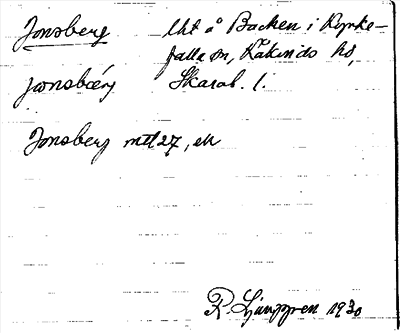 Jonsberg lht å Backen i Kyrke-
falla sn, Kåkinds hd,
jɷnsbærj Skarab. l.
Jonsberg mtl 27, ek
R. Ljunggren 1930